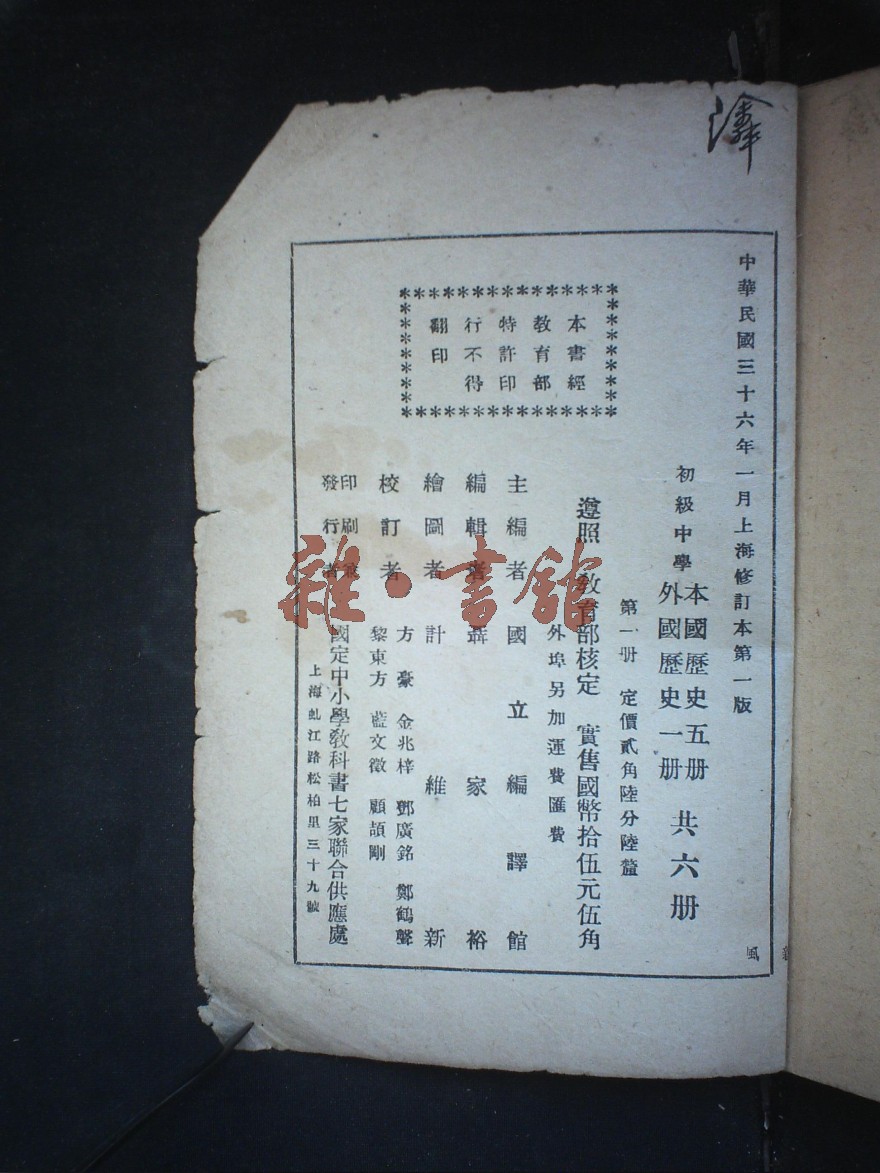 中華民國三十六年一月上海修訂本第一版
初級中學
本國歷史五册
外國歷史一册
共六册
第一册 定價貳角陸分陸釐
遵照 教育部核定 實售國幣拾伍元伍角
外埠另加運費匯費
本書經
教育部
特許印
行不得
翻印
主編者 國立編譯館
編輯者 聶家裕
繪圖者 計維新
校訂者
方豪 金兆梓 鄧廣銘 鄭鶴聲
黎東方 藍文徵 顧頡剛
印刷兼
發行者
國定中小學教科書七家聯合供應處
上海虬江路松柏里三十九號
風
雜·書館